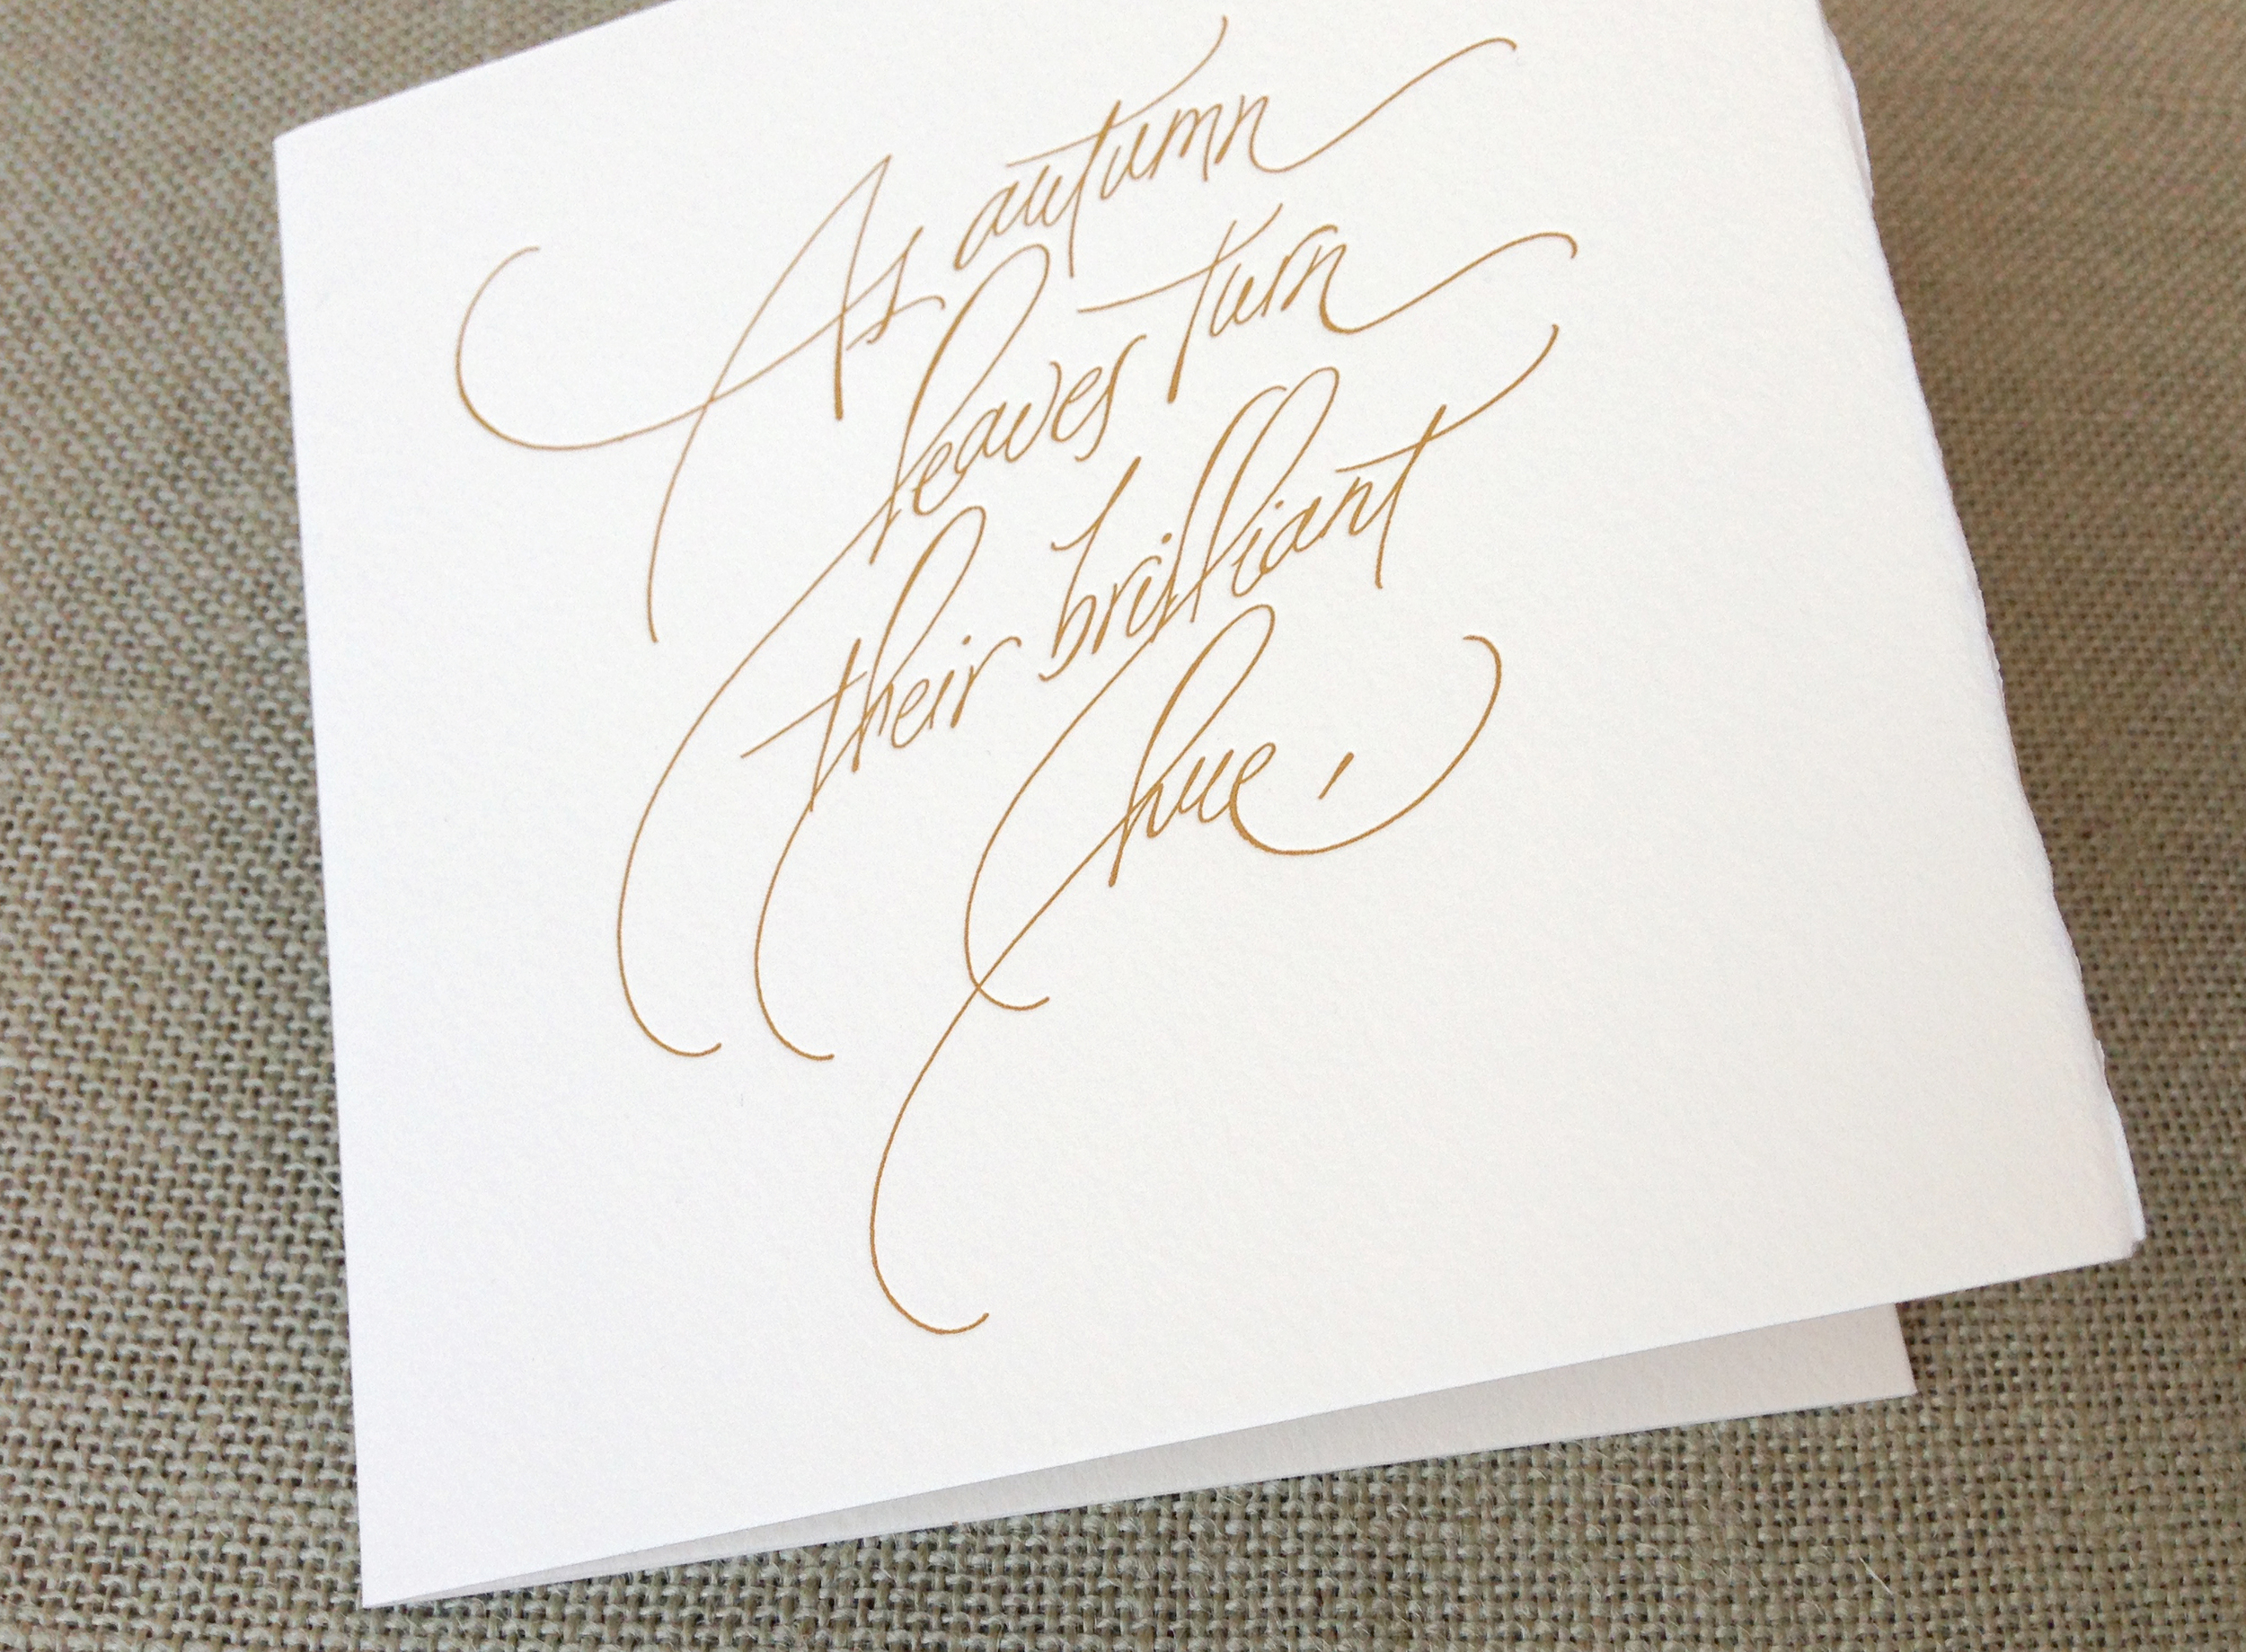 As autumn
leaves turn
their brilliant
hue,